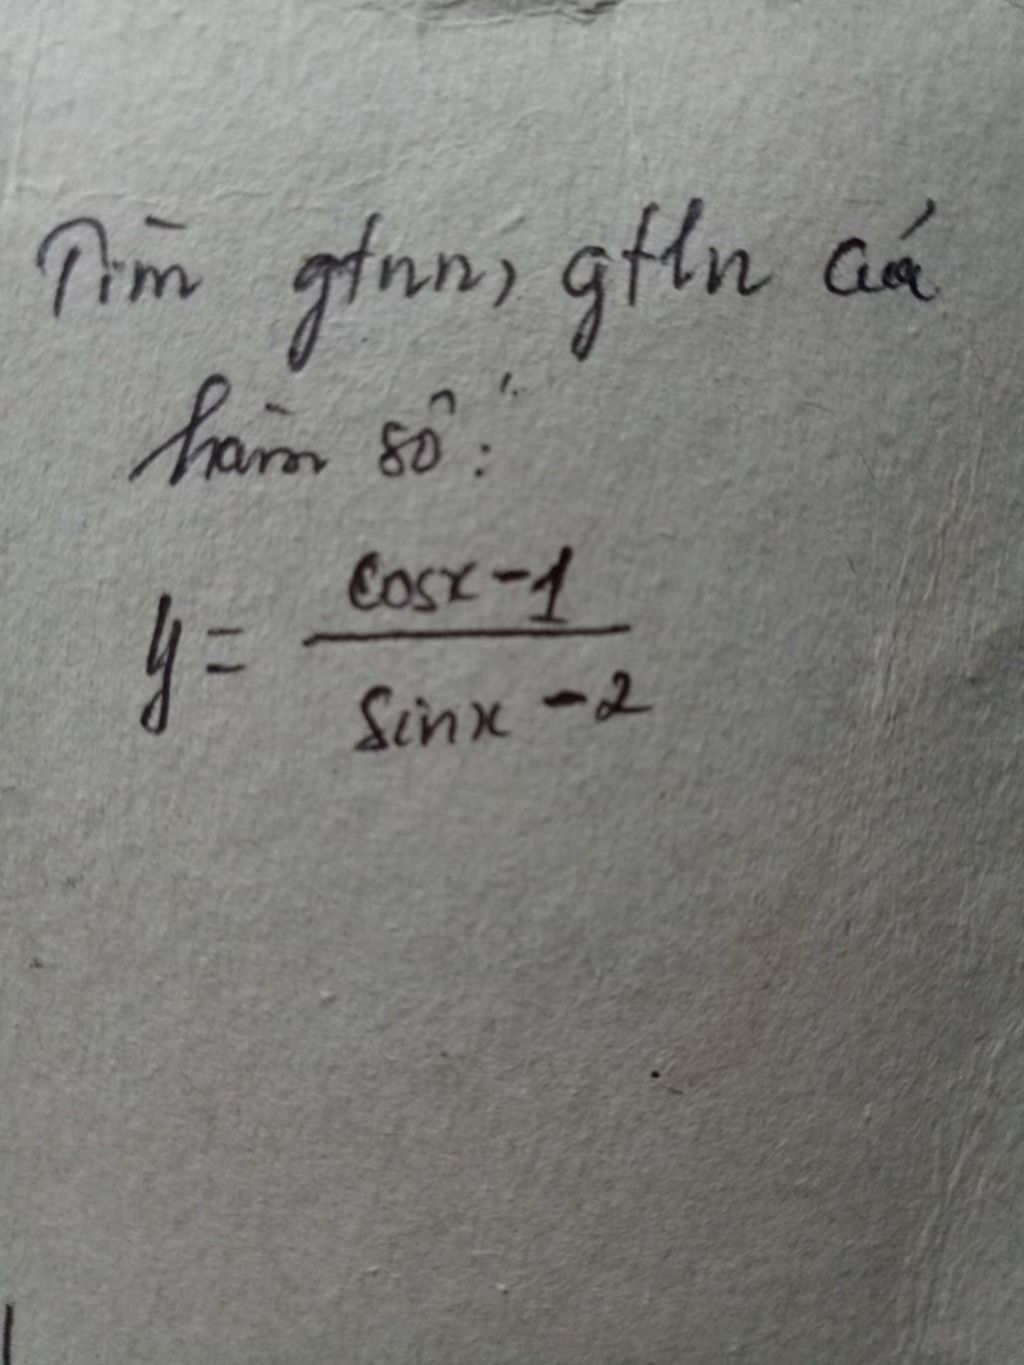 Tìm gtnn, gtln của
hàm số:
y = \frac{cosx - 1}{sinx - 2}